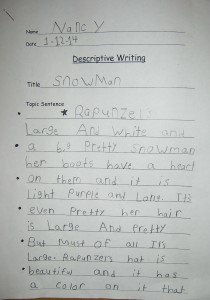 Name Nancy
Date 1-12-14
Descriptive Writing
Title Snowman
Topic Sentence
★ Rapunzel
Large And White and
a big Pretty Snowman
her boots have a heart
on them and it is
light Purple and Long. It
even Pretty her hair
is Large And Pretty
But Must of all In
Large. Rapunzels hat is
beautiful and it has
a color on it that